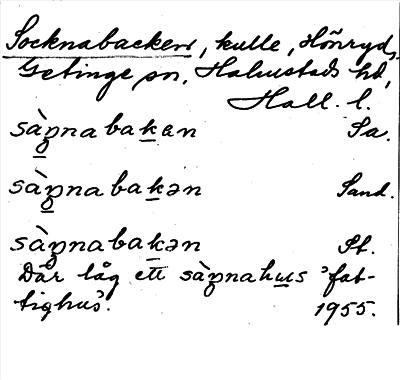 Socknabacken, kulle, Hönryd,
Getinge sn, Halmstads hd,
Hall. l.
sàŋnabakan Sa.
sàŋnabakən Sand.
sàŋnabakən St.
Där låg ett sàŋnahus 'fat-
tighus'. 1955.